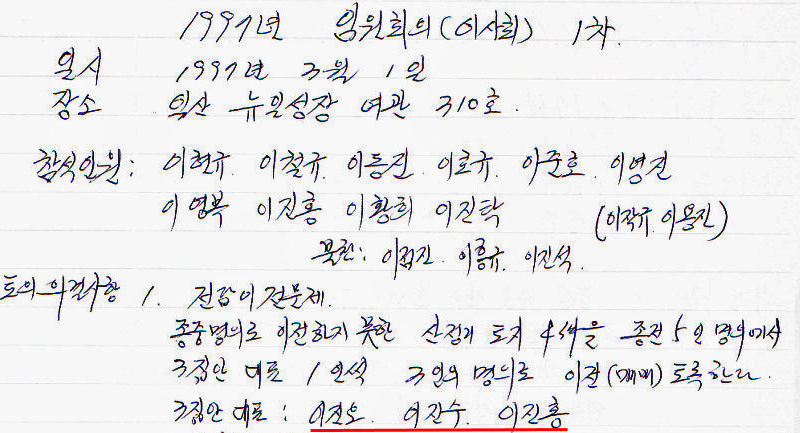 1997년 임원회의(이사회) 1차.
일시 1997년 3월 1일
장소 익산 뉴일성장 여관 310호.
참석인원: 이현규. 이철규. 이동진. 이효규. 이준호. 이영진
이영복 이진홍 이황희 이진탁 (이작규. 이용진)
불참: 이점진. 이흥규. 이진석.
토의 의결사항 1. 전답이전문제.
종중명의로 이전하지 못한 산정리 토지 4필을 종전 5인 명의에서
3집안 대표 1인씩 3인의 명의로 이전(매매)토록한다.
3집안 대표 : 이진오. 이진수. 이진홍